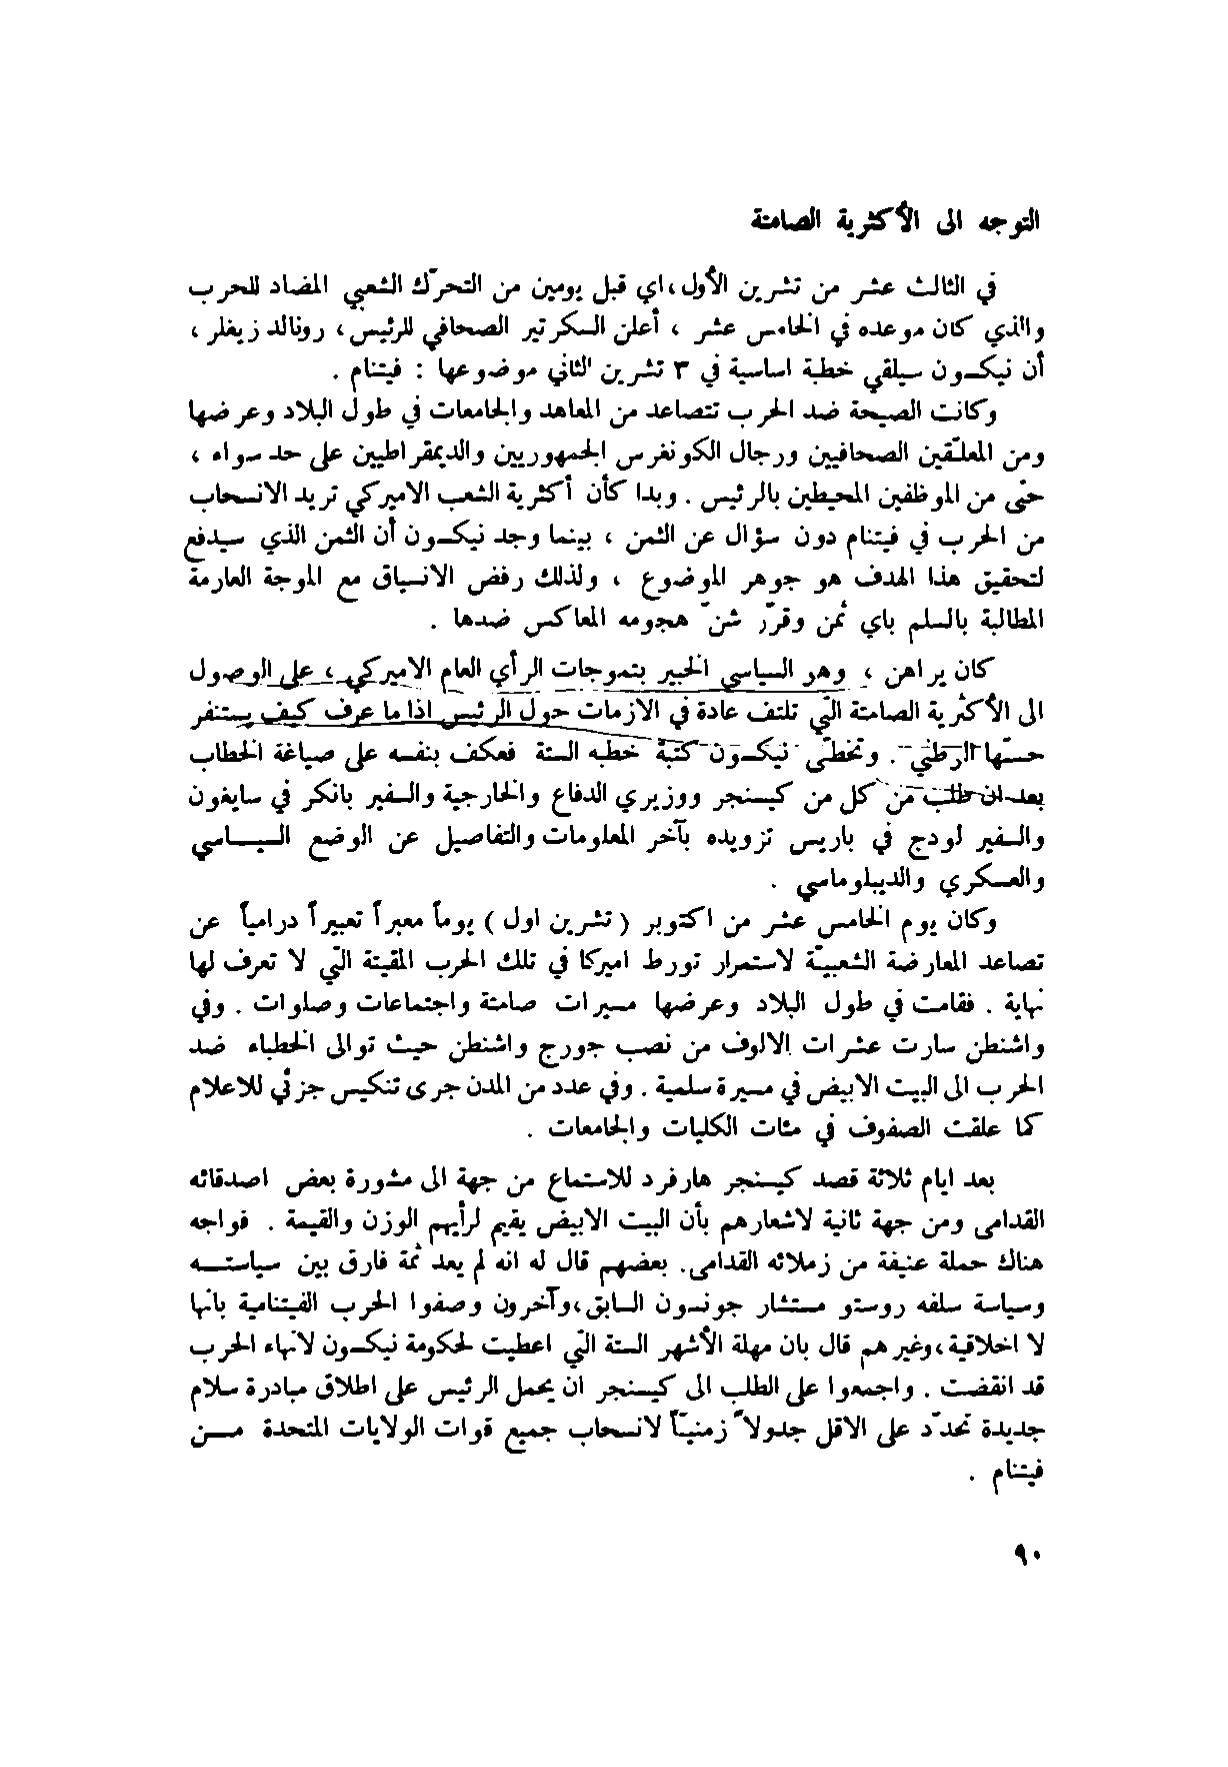 التوجه الى الأكثرية الصامتة
في الثالث عشر من تشرين الأول، اي قبل يومين من التحرّك الشعبي المضاد للحرب
والذي كان موعده في الخامس عشر ، أعلن السكرتير الصحافي للرئيس، رونالد زيغلر ،
أن نيكسون سيلقي خطبة اساسية في ٣ تشرين الثاني موضوعها : فيتنام .
وكانت الصيحة ضد الحرب تتصاعد من المعاهد والجامعات في طول البلاد وعرضها
ومن المعلّقين الصحافيين ورجال الكونغرس الجمهوريين والديمقراطيين على حد سواء ،
حتى من الموظفين المحيطين بالرئيس . وبدا كأن أكثرية الشعب الاميركي تريد الانسحاب
من الحرب في فيتنام دون سؤال عن الثمن ، بينما وجد نيكسون أن الثمن الذي سيدفع
لتحقيق هذا الهدف هو جوهر الموضوع ، ولذلك رفض الانسياق مع الموجة العارمة
المطالبة بالسلم باي ثمن وقرّر شنّ هجومه المعاكس ضدها .
كان يراهن ، وهو السياسي الخبير بتموجات الرأي العام الاميركي ، على الوصول
الى الأكثرية الصامتة التي تلتف عادة في الازمات حول الرئيس اذا ما عرف كيف يستنفر
حسّها الوطني . وتخطّى نيكسون كتبة خطبه الستة فعكف بنفسه على صياغة الخطاب
بعد ان طلب من كل من كيسنجر ووزيري الدفاع والخارجية والسفير بانكر في سايغون
والسفير لودج في باريس تزويده بآخر المعلومات والتفاصيل عن الوضع السياسي
والعسكري والديبلوماسي .
وكان يوم الخامس عشر من اكتوبر ( تشرين اول ) يوماً معبراً تعبيراً درامياً عن
تصاعد المعارضة الشعبيّة لاستمرار تورط اميركا في تلك الحرب المقيتة التي لا تعرف لها
نهاية . فقامت في طول البلاد وعرضها مسيرات صامتة واجتماعات وصلوات . وفي
واشنطن سارت عشرات الالوف من نصب جورج واشنطن حيث توالى الخطباء ضد
الحرب الى البيت الابيض في مسيرة سلمية . وفي عدد من المدن جرى تنكيس جزئي للاعلام
كما علقت الصفوف في مئات الكليات والجامعات .
بعد ايام ثلاثة قصد كيسنجر هارفرد للاستماع من جهة الى مشورة بعض اصدقائه
القدامى ومن جهة ثانية لاشعارهم بأن البيت الابيض يقيم لرأيهم الوزن والقيمة . فواجه
هناك حملة عنيفة من زملائه القدامى. بعضهم قال له انه لم يعد ثمة فارق بين سياسته
وسياسة سلفه روستو مستشار جونسون السابق، وآخرون وصفوا الحرب الفيتنامية بانها
لا اخلاقية، وغيرهم قال بان مهلة الأشهر الستة التي اعطيت لحكومة نيكسون لانهاء الحرب
قد انقضت . واجمعوا على الطلب الى كيسنجر ان يحمل الرئيس على اطلاق مبادرة سلام
جديدة تحدّد على الاقل جدولاً زمنيّاً لانسحاب جميع قوات الولايات المتحدة من
فيتنام .
٩٠